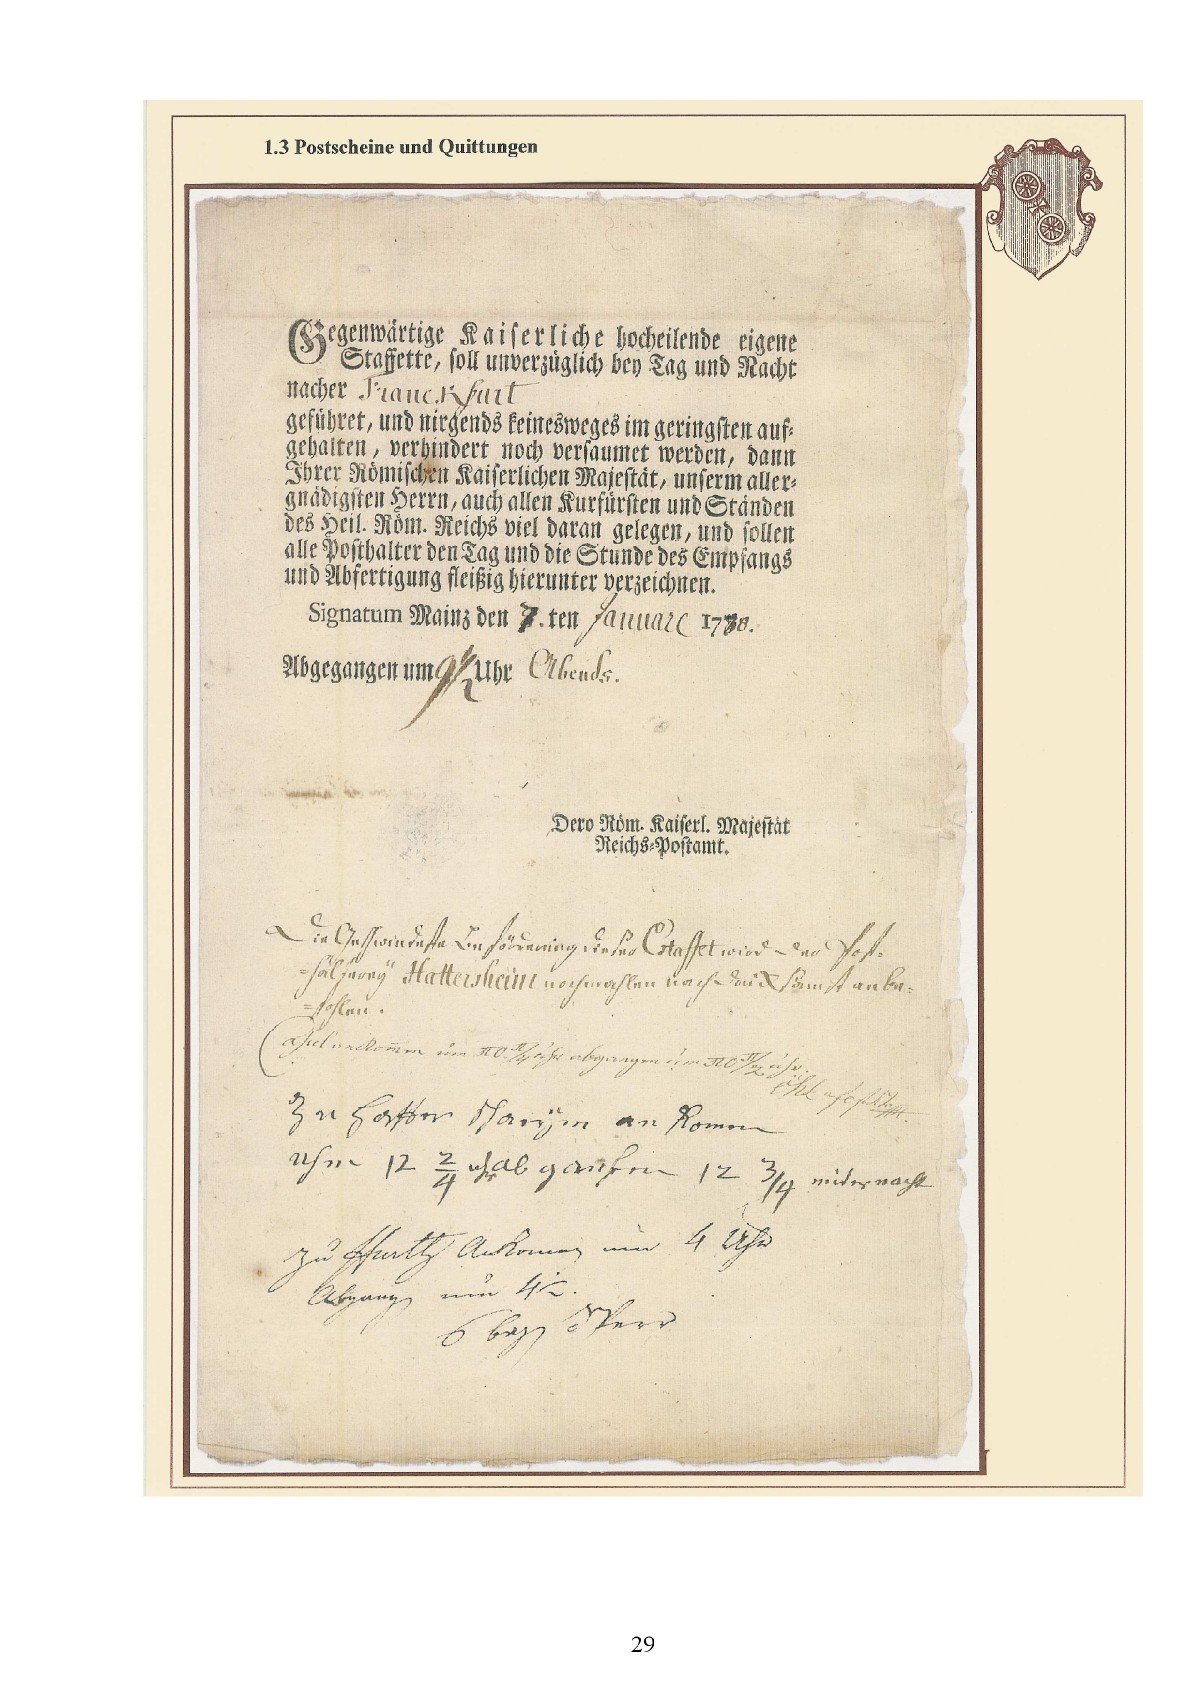 1.3 Postscheine und Quittungen
Gegenwärtige Kaiserliche hocheilende eigene
Staffette, soll unverzüglich bey Tag und Nacht
nacher Franckfurt
geführet, und nirgends keinesweges im geringsten auf-
gehalten, verhindert noch versaumet werden, dann
Ihrer Römischen Kaiserlichen Majestät, unserm aller-
gnädigsten Herrn, auch allen Kurfürsten und Ständen
des Heil. Röm. Reichs viel daran gelegen, und sollen
alle Posthalter den Tag und die Stunde des Empfangs
und Abfertigung fleißig hierunter verzeichnen.
Signatum Mainz den 7. ten Januarii 1780.
Abgegangen um 9 1/2 Uhr Abends.
Dero Röm. Kaiserl. Majestät
Reichs-Postamt.
Die Geschwindeste Beförderung dieser Estaffet wird der Post-
Hattersheim nochmahlen nach anbe-
fohlen.
ankomm um abgangen um
Zu an komm
uhm 12 2/4 uhr ab 12 3/4 miternacht
zu ffurth Ankomen um 4 Uhr
Abgang um